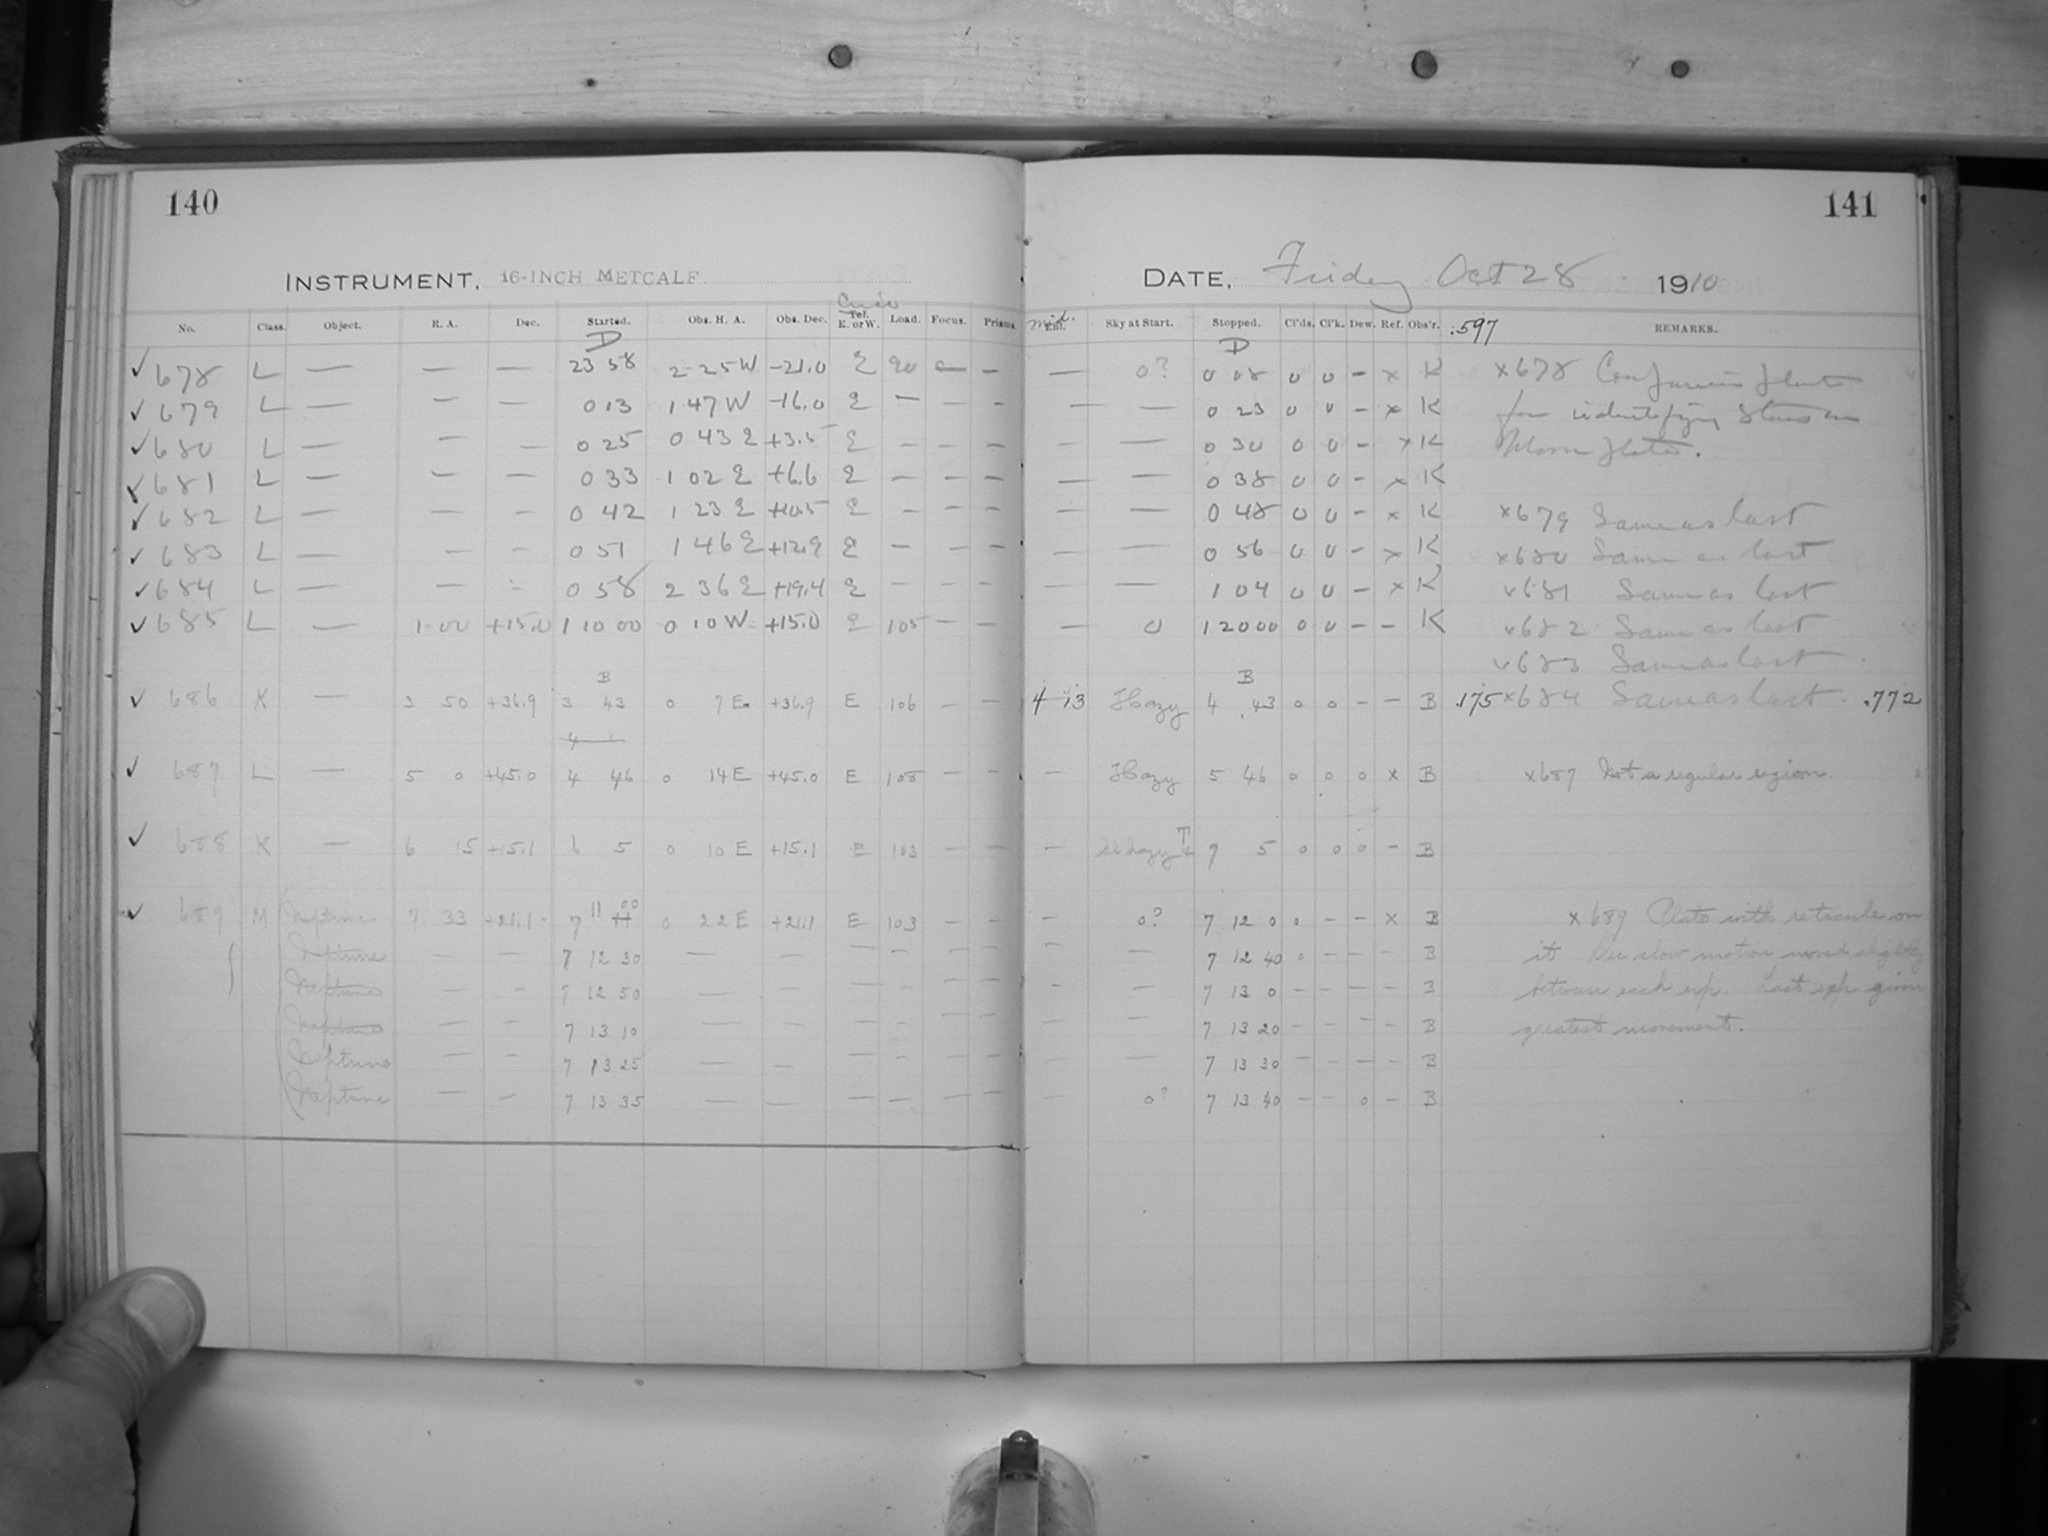 140
141
INSTRUMENT, 16-INCH METCALF
DATE, Friday Oct 28 1910
No. Class. Object. R. A. Dec. Started. Obs. H. A. Obs. Dec. Tel. E. or W. Load. Focus. Prisms. Mid. Sky at Start. Stopped. Cl'ds. Cl'k. Dew. Ref. Obs'r. .597 REMARKS.
D D
✓ 678 L — — — 23 58 2 25 W -21.0 E 90 — — — 0? 0 08 0 0 – x K x678 Plate
✓ 679 L — — — 0 13 1 47 W -16.0 E — — — — — 0 23 0 0 – x K for identifying stars on
✓ 680 L — — — 0 25 0 43 E +3.5 E — — — — — 0 30 0 0 – x K Moon plates.
✓ 681 L — — — 0 33 1 02 E +6.6 E — — — — — 0 38 0 0 – x K
✓ 682 L — — — 0 42 1 23 E +10.5 E — — — — — 0 48 0 0 – x K x679 Same as last
✓ 683 L — — — 0 51 1 46 E +12.9 E — — — — — 0 56 0 0 – x K x680 Same as last
✓ 684 L — — — 0 58 2 36 E +19.4 E — — — — — 1 04 0 0 – x K x681 Same as last
✓ 685 L — 1 00 +15.0 1 10 00 0 10 W +15.0 E 105 – – — 0 1 20 00 0 0 – – K x682 Same as last
x683 Same as last
B B
✓ 686 K — 3 50 +36.9 3 43 0 7 E +36.9 E 106 — — 4 13 Hazy 4 43 0 0 – – B .175 x684 Same as last. .772
✓ 687 L — 5 0 +45.0 4 46 0 14 E +45.0 E 108 — — — Hazy 5 46 0 0 0 x B x687 Not a regular region.
✓ 688 K — 6 15 +15.1 6 5 0 10 E +15.1 E 103 — — — hazy 7 5 0 0 0 – B
✓ 689 M Neptune 7 33 +21.1 7 11 00 0 22 E +21.1 E 103 — — — 0? 7 12 0 0 – – x B x689 Plate with reticule on
Neptune — — 7 12 30 — — — — — — — — 7 12 40 0 – – – B it Dec slow motion moved slightly
Neptune — — 7 12 50 — — — — — — — — 7 13 0 – – – – B between each exp. Last exp. given
Neptune — — 7 13 10 — — — — — — — — 7 13 20 – – – – B greatest movement.
Neptune — — 7 13 25 — — — — — — — — 7 13 30 – – – – B
Neptune — — 7 13 35 — — — — — — — 0? 7 13 40 – – 0 – B